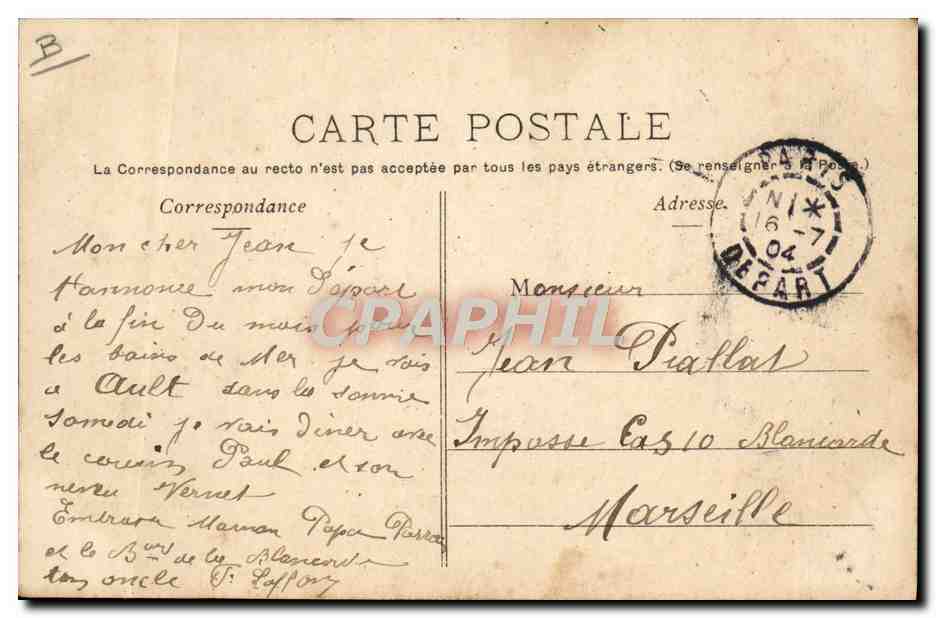 B
CARTE POSTALE
La Correspondance au recto n'est pas acceptée par tous les pays étrangers. (Se renseigner à la Poste.)
Correspondance
Mon cher Jean je
t'annonce mon Départ
à la fin Du mois pour
les bains de Mer je vais
a Ault dans la somme
samedi je vais Diner avec
le cousin Paul et son
neveu Vernet
Embrasse Maman Papa
et le Bard de la Blancarde
ton oncle
Adresse
Monsieur
Jean Piallat
Impasse Blancarde
Marseille
PARIS
16 -7
04
DEPART
CPAPHIL